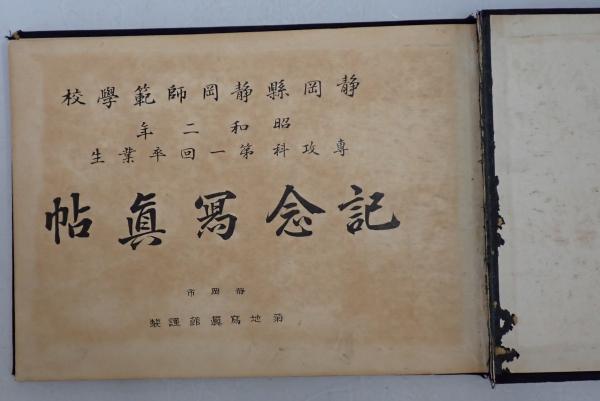 靜岡縣靜岡師範學校
昭和二年
專攻科第一回卒業生
記念寫眞帖
靜岡市
菊地寫眞館謹製